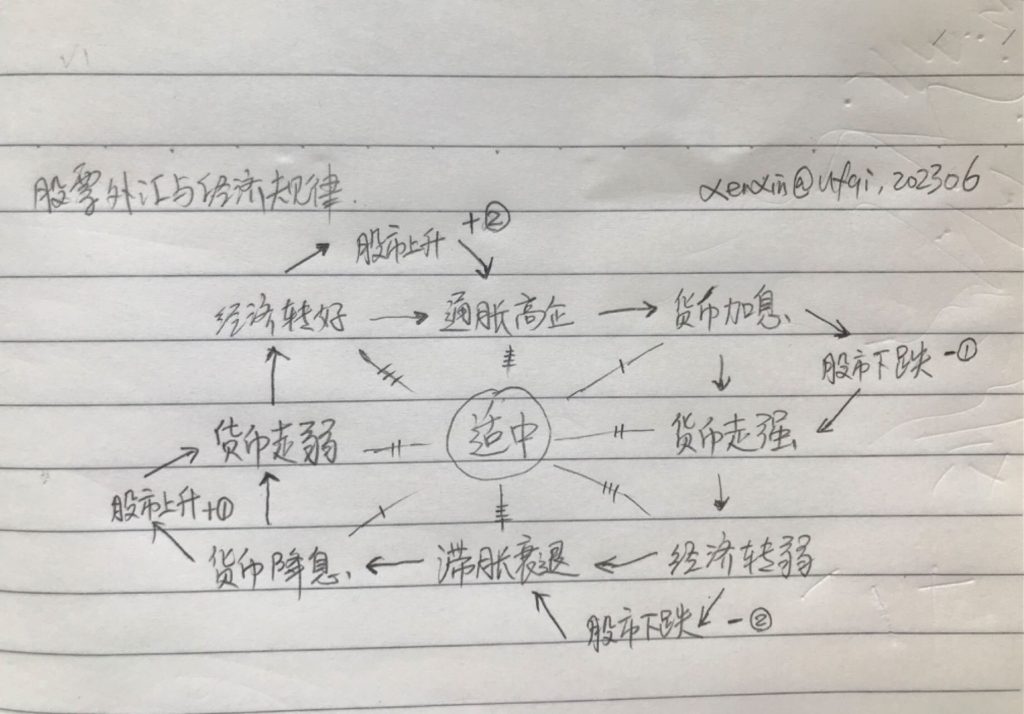 股票外汇与经济规律.
xenxin@ufqi, 202306
股市上升 +②
经济转好 → 通胀高企 → 货币加息
股市下跌 -①
货币走弱 适中 货币走强
股市上升+①
货币降息 ← 滞胀衰退 ← 经济转弱
股市下跌 -②